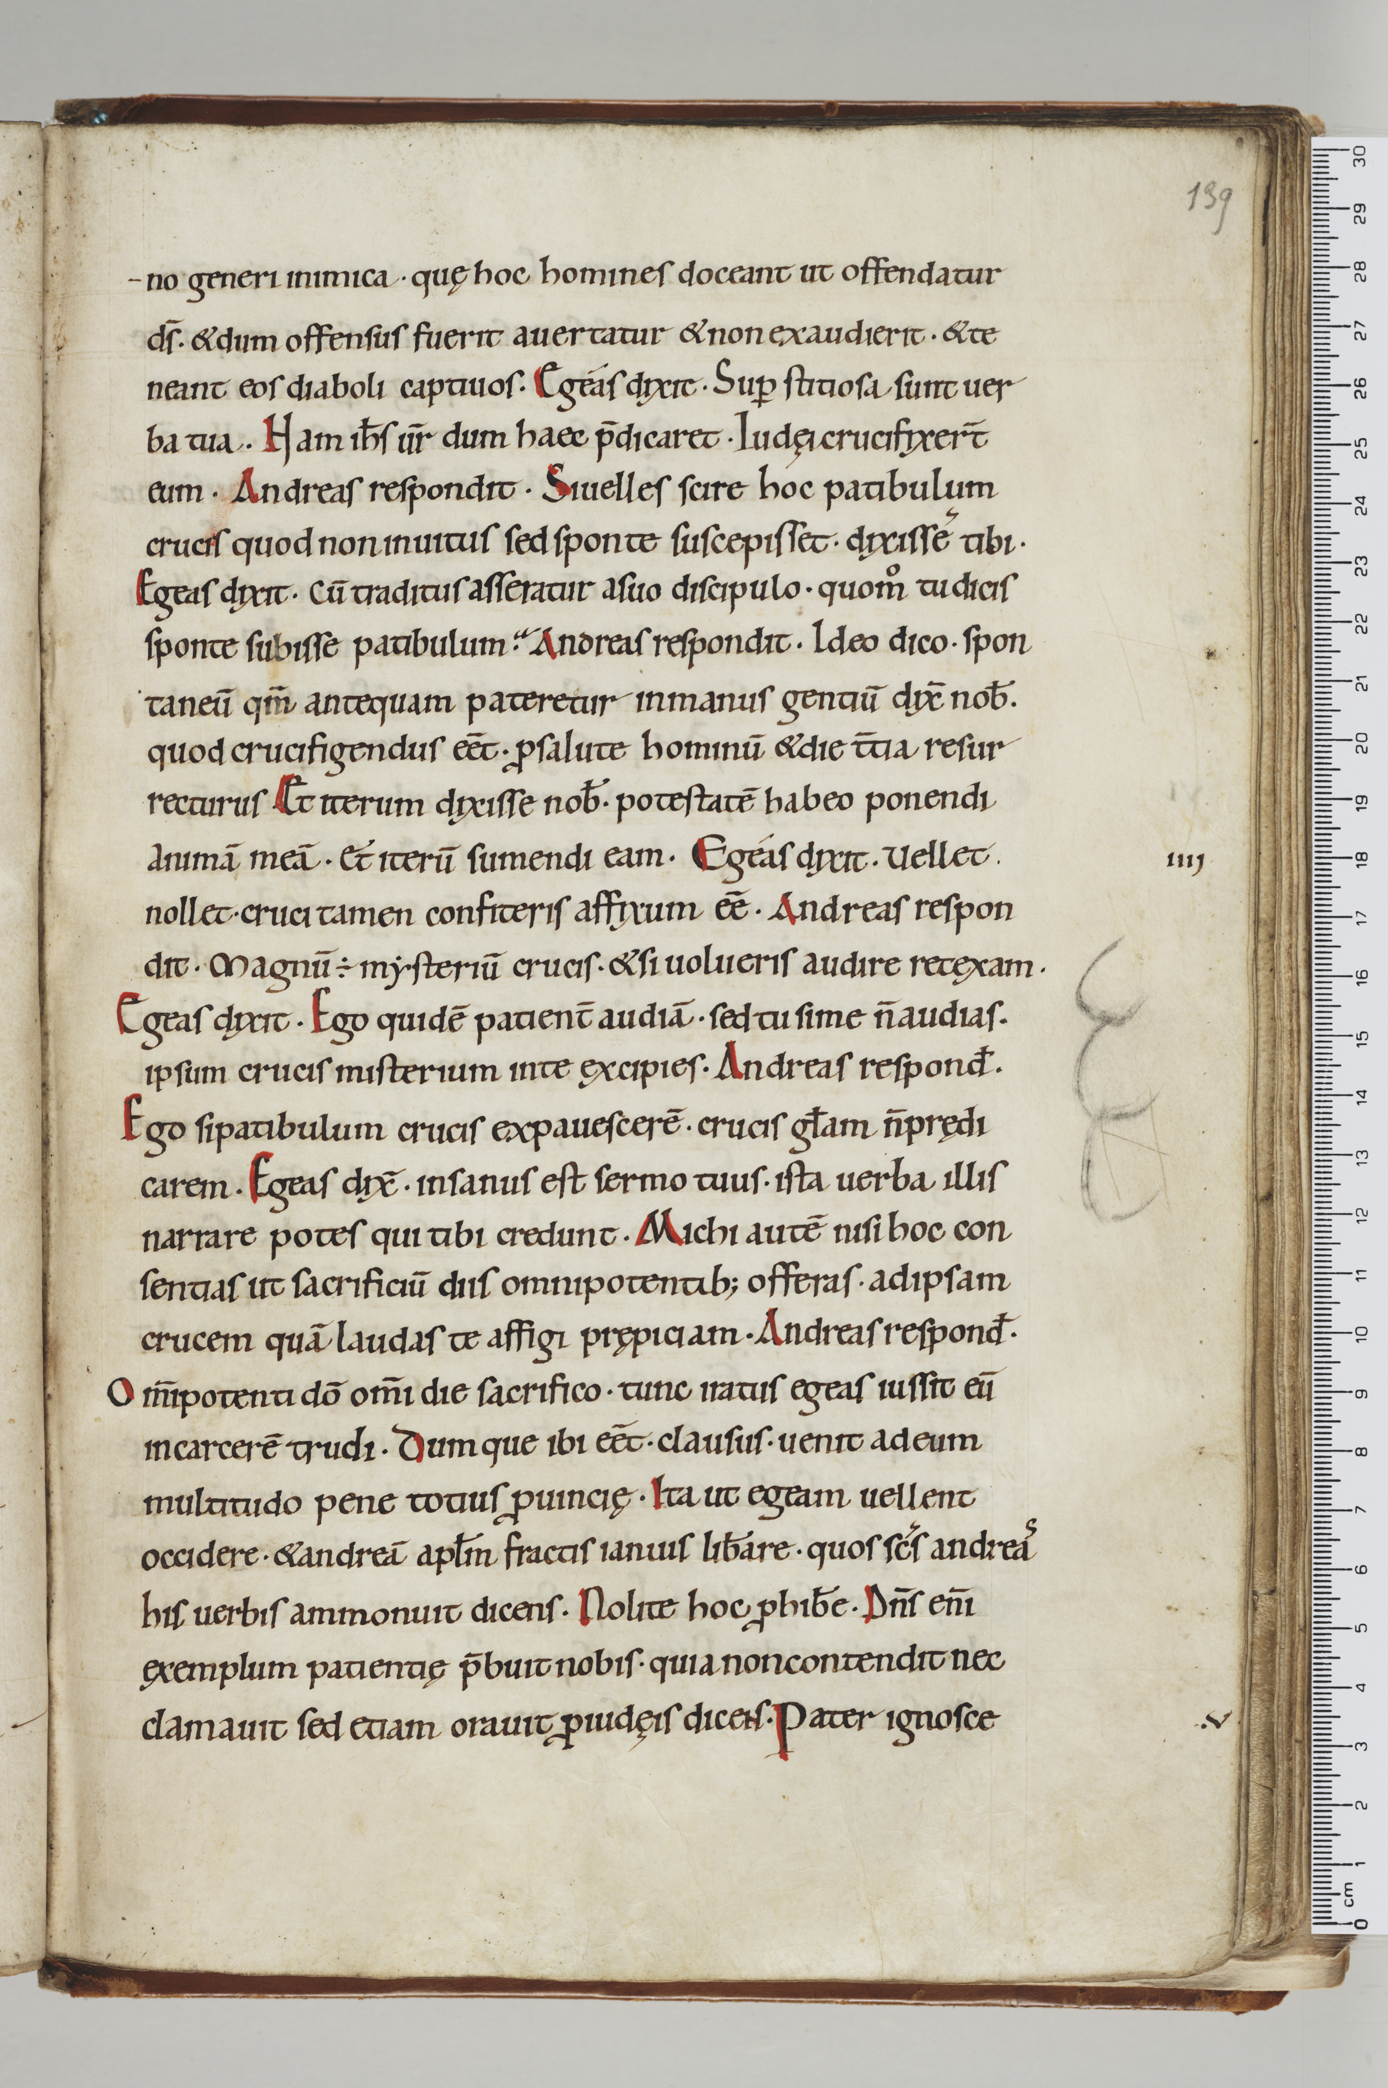 139
-no generi inimica · quę hoc homines doceant ut offendatur
ds̄ · & dum offensus fuerit auertatur & non exaudierit · & te
neant eos diaboli captiuos · Egéas dixit · Suꝑ stitiosa sunt uer
ba tua · Nam ih̄s ur̄ dum haec p̄dicaret · Iudęi crucifixer̄t
eum · Andreas respondit · Si uelles scire hoc patibulum
crucis quod non inuitus sed sponte suscepisset · dixissē tibi ·
Egeas dixit · Cū traditus asseratur a suo discipulo · quom̊ tu dicis
sponte subisse patibulum · Andreas respondit · Ideo dico · spon
taneū qm̄ antequam pateretur in manus gentiū dix̄ nob̄ ·
quod crucifigendus eēt · ꝓ salute hominū & die t̄tia resur
recturus Et iterum dixisse nob̄ · potestatē habeo ponendi
animā meā · et iterū sumendi eam · Egéas dixit · Uellet ·
nollet · cruci tamen confiteris affixum eē · Andreas respon
dit · Magnū ÷ mẏsteriū crucis · & si uolueris audire retexam ·
Egeas dixit · Ego quidē patient̄ audiā · sed tu si me n̄ audias ·
ipsum crucis misterium in te ęxcipies · Andreas respond̄ ·
Ego si patibulum crucis expauescerē · crucis gl̄am n̄ prędi
carem · Egeas dix̄ · insanus est sermo tuus · ista uerba illis
narrare potes qui tibi credunt · Michi autē nisi hoc con
sentias ut sacrificiū diis omnipotentib; offeras · ad ipsam
crucem quā laudas te affigi prępiciam · Andreas respond̄ ·
Om̄ipotenti dō om̄i die sacrifico · tunc iratus egeas iussit eū
in carcerē trudi · Dum que ibi eēt · clausus · uenit ad eum
multitudo pene totius ꝓuincię · Ita ut egeam uellent
occidere · & andreā apl̄m fractis ianuis lib̄are · quos sc̄s andreas
his uerbis ammonuit dicens · Nolite hoc ꝓhib̄e · Dn̄s en̄i
ęxemplum patientię p̄buit nobis · quia non contendit nec
clamauit sed etiam orauit ꝓ iudęis dicens · Pater ignosce
iiij
.v.